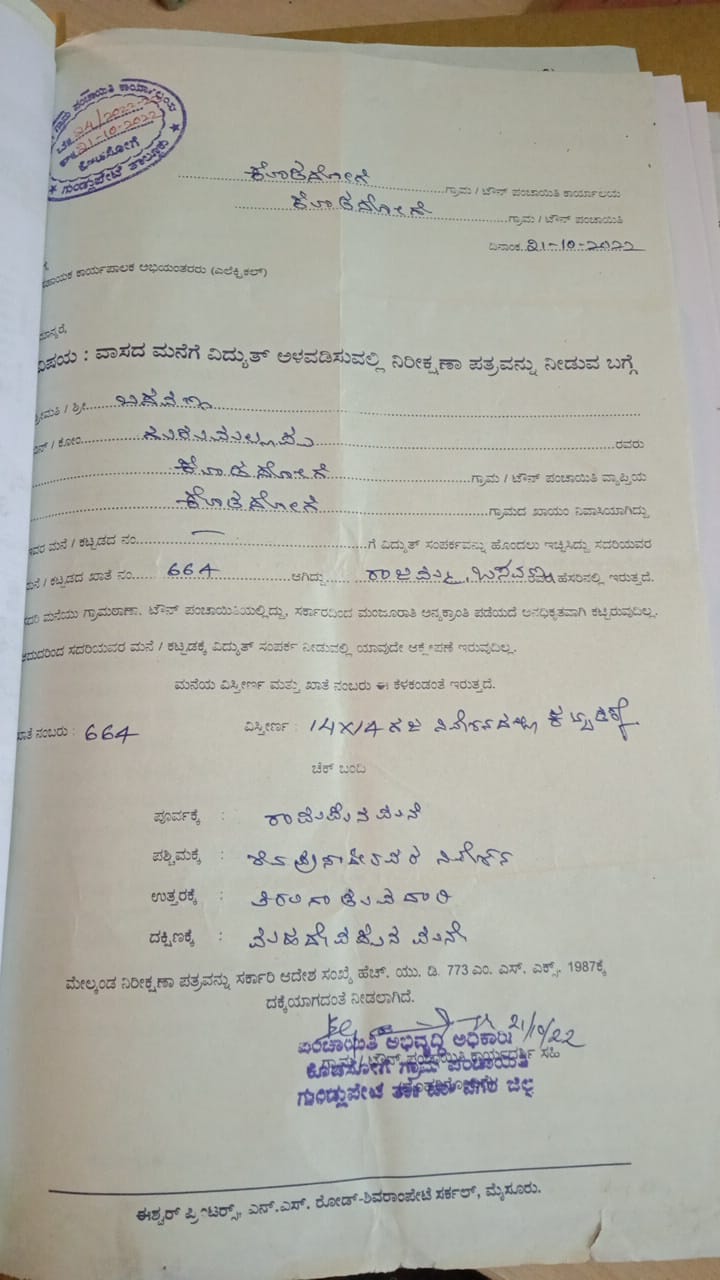 ಗ್ರಾಮ ಪಂಚಾಯಿತಿ ಕಾರ್ಯಾಲಯ
24/2022-2
21-10-2022
ಕೊಡಸೋಗೆ
ಗುಂಡ್ಲುಪೇಟೆ ತಾಲ್ಲೂಕು
ಕೊಡಸೋಗೆ ಗ್ರಾಮ / ಟೌನ್ ಪಂಚಾಯಿತಿ ಕಾರ್ಯಾಲಯ
ಕೊಡಸೋಗೆ ಗ್ರಾಮ / ಟೌನ್ ಪಂಚಾಯಿತಿ
ದಿನಾಂಕ 21-10-2022
ಕಾರ್ಯಪಾಲಕ ಅಭಿಯಂತರರು (ಎಲೆಕ್ಟ್ರಿಕಲ್)
ಮಾನ್ಯರೆ,
ವಿಷಯ : ವಾಸದ ಮನೆಗೆ ವಿದ್ಯುತ್ ಅಳವಡಿಸುವಲ್ಲಿ ನಿರೀಕ್ಷಣಾ ಪತ್ರವನ್ನು ನೀಡುವ ಬಗ್ಗೆ
ಶ್ರೀಮತಿ / ಶ್ರೀ ಬಸವಣ್ಣ
ಬಿನ್ / ಕೋಂ ಗುರುಮಲ್ಲಪ್ಪ ರವರು
ಕೊಡಸೋಗೆ ಗ್ರಾಮ / ಟೌನ್ ಪಂಚಾಯಿತಿ ವ್ಯಾಪ್ತಿಯ
ಕೊಡಸೋಗೆ ಗ್ರಾಮದ ಖಾಯಂ ನಿವಾಸಿಯಾಗಿದ್ದು
ಇವರ ಮನೆ / ಕಟ್ಟಡದ ನಂ. — ಗೆ ವಿದ್ಯುತ್ ಸಂಪರ್ಕವನ್ನು ಹೊಂದಲು ಇಚ್ಛಿಸಿದ್ದು ಸದರಿಯವರ
ಮನೆ / ಕಟ್ಟಡದ ಖಾತೆ ನಂ. 664 ಆಗಿದ್ದು ಬಸವಣ್ಣ ಹೆಸರಿನಲ್ಲಿ ಇರುತ್ತದೆ.
ಸದರಿ ಮನೆಯು ಗ್ರಾಮಠಾಣಾ, ಟೌನ್ ಪಂಚಾಯಿತಿಯಲ್ಲಿದ್ದು, ಸರ್ಕಾರದಿಂದ ಮಂಜೂರಾತಿ ಅನ್ಯಕ್ರಾಂತಿ ಪಡೆಯದೆ ಅನಧಿಕೃತವಾಗಿ ಕಟ್ಟಿರುವುದಿಲ್ಲ.
ಆದುದರಿಂದ ಸದರಿಯವರ ಮನೆ / ಕಟ್ಟಡಕ್ಕೆ ವಿದ್ಯುತ್ ಸಂಪರ್ಕ ನೀಡುವಲ್ಲಿ ಯಾವುದೇ ಆಕ್ಷೇಪಣೆ ಇರುವುದಿಲ್ಲ.
ಮನೆಯ ವಿಸ್ತೀರ್ಣ ಮತ್ತು ಖಾತೆ ನಂಬರು ಈ ಕೆಳಕಂಡಂತೆ ಇರುತ್ತದೆ.
ಖಾತೆ ನಂಬರು : 664 ವಿಸ್ತೀರ್ಣ : 14X14 ಗಜ ನಿವೇಶನದಲ್ಲಿ
ಚೆಕ್ ಬಂದಿ
ಪೂರ್ವಕ್ಕೆ : ಮನೆ
ಪಶ್ಚಿಮಕ್ಕೆ : ನಿವೇಶನ
ಉತ್ತರಕ್ಕೆ : ತಿರುಗಾಡುವ ದಾರಿ
ದಕ್ಷಿಣಕ್ಕೆ : ಮನೆ
ಮೇಲ್ಕಂಡ ನಿರೀಕ್ಷಣಾ ಪತ್ರವನ್ನು ಸರ್ಕಾರಿ ಆದೇಶ ಸಂಖ್ಯೆ ಹೆಚ್. ಯು. ಡಿ. 773 ಎಂ. ಎಸ್. ಎಕ್ಸ್. 1987ಕ್ಕೆ
ದಕ್ಕೆಯಾಗದಂತೆ ನೀಡಲಾಗಿದೆ.
21/10/22
ಪಂಚಾಯಿತಿ ಅಭಿವೃದ್ಧಿ ಅಧಿಕಾರಿ
ಗ್ರಾಮ / ಟೌನ್ ಪಂಚಾಯಿತಿ ಕಾರ್ಯದರ್ಶಿ ಸಹಿ
ಕೊಡಸೋಗೆ ಗ್ರಾಮ ಪಂಚಾಯಿತಿ
ಗುಂಡ್ಲುಪೇಟೆ
ಈಶ್ವರ್ ಪ್ರಿಂಟರ್ಸ್, ಎನ್.ಎಸ್. ರೋಡ್-ಶಿವರಾಂಪೇಟೆ ಸರ್ಕಲ್, ಮೈಸೂರು.